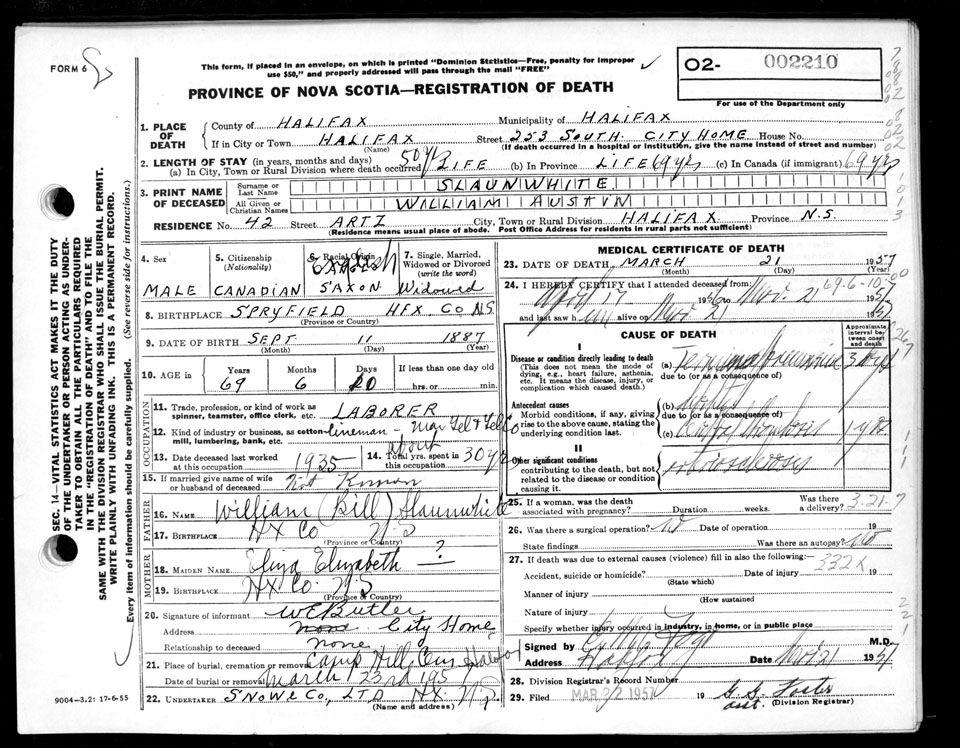 FORM 6
This form, if placed in an envelope, on which is printed "Dominion Statistics—Free, penalty for improper
use $50," and properly addressed will pass through the mail "FREE"
O2- 002210
For use of the Department only
PROVINCE OF NOVA SCOTIA—REGISTRATION OF DEATH
SEC. 14—VITAL STATISTICS ACT MAKES IT THE DUTY
OF THE UNDERTAKER OR PERSON ACTING AS UNDER-
TAKER TO OBTAIN ALL THE PARTICULARS REQUIRED
IN THE "REGISTRATION OF DEATH" AND TO FILE THE
SAME WITH THE DIVISION REGISTRAR WHO SHALL ISSUE THE BURIAL PERMIT.
WRITE PLAINLY WITH UNFADING INK. THIS IS A PERMANENT RECORD.
Every item of information should be carefully supplied. (See reverse side for instructions.)
1. PLACE OF DEATH
County of HALIFAX Municipality of HALIFAX
If in City or Town HALIFAX Street 253 SOUTH. CITY HOME House No.
(Name) (If death occurred in a hospital or institution, give the name instead of street and number)
2. LENGTH OF STAY (in years, months and days)
(a) In City, Town or Rural Division where death occurred 50 yrs LIFE (b) In Province LIFE 69 yrs (c) In Canada (if immigrant) 69 yrs
3. PRINT NAME OF DECEASED
Surname or Last Name SLAUNWHITE
All Given or Christian Names WILLIAM AUSTIN
RESIDENCE No. 42 Street ARTZ City, Town or Rural Division HALIFAX Province N.S.
(Residence means usual place of abode. Post Office Address for residents in rural parts not sufficient)
4. Sex
MALE
5. Citizenship
(Nationality)
CANADIAN
6. Racial Origin
SAXON
7. Single, Married,
Widowed or Divorced
(write the word)
Widowed
8. BIRTHPLACE SPRYFIELD HFX. CO N.S
(Province or Country)
9. DATE OF BIRTH SEPT 11 1887
(Month) (Day) (Year)
10. AGE in Years Months Days If less than one day
69 6 10 hrs. or min.
OCCUPATION
11. Trade, profession, or kind of work as
spinner, teamster, office clerk, etc. LABORER
12. Kind of industry or business, as cotton-
mill, lumbering, bank, etc. lineman - Mar Tel & Tel Co
13. Date deceased last worked
at this occupation 1935
14. Total yrs. spent in
this occupation about 30 yrs
15. If married give name of wife
or husband of deceased Not Known
FATHER
16. Name William (Bill) Slaunwhite
17. Birthplace HX Co N.S
(Province or Country)
MOTHER
18. Maiden Name Eliza Elizabeth — ?
19. Birthplace HX Co. N.S
(Province or Country)
20. Signature of informant W E Butler
Address City Home
Relationship to deceased none
21. Place of burial, cremation or removal Camp Hill Cem
Date of burial or removal March 23rd 1957
22. Undertaker SNOW & CO, LTD HX. N.S
(Name and address)
9004—3.2: 17-6-55
MEDICAL CERTIFICATE OF DEATH
23. DATE OF DEATH MARCH 21 1957
(Month) (Day) (Year)
69-6-10-
24. I HEREBY CERTIFY that I attended deceased from:
April 17 1956 to Mar. 21 1957
and last saw him alive on Mar 21 1957
CAUSE OF DEATH
Approximate
interval be-
tween onset
and death
I
Disease or condition directly leading to death
(This does not mean the mode of
dying, e.g., heart failure, asthenia,
etc. It means the disease, injury, or
complication which caused death.)
(a) Terminal pneumonia 3 days
due to (or as a consequence of)
Antecedent causes
Morbid conditions, if any, giving
rise to the above cause, stating the
underlying condition last.
(b)
due to (or as a consequence of)
(c) thrombosis 1 yr
II
Other significant conditions
contributing to the death, but not
related to the disease or condition
causing it.
3-21-7
25. If a woman, was the death
associated with pregnancy? Duration weeks. Was there a delivery?
26. Was there a surgical operation? no Date of operation 19
State findings Was there an autopsy? no
27. If death was due to external causes (violence) fill in also the following:—
332X
Accident, suicide or homicide? Date of injury 19
(State which)
Manner of injury
(How sustained
Nature of injury
Specify whether injury occurred in industry, in home, or in public place
Signed by M.D.
Address Halifax Date Mar 21 1957
28. Division Registrar's Record Number
29. Filed MAR 22 1957 19 G. S. Foster
asst. (Division Registrar)